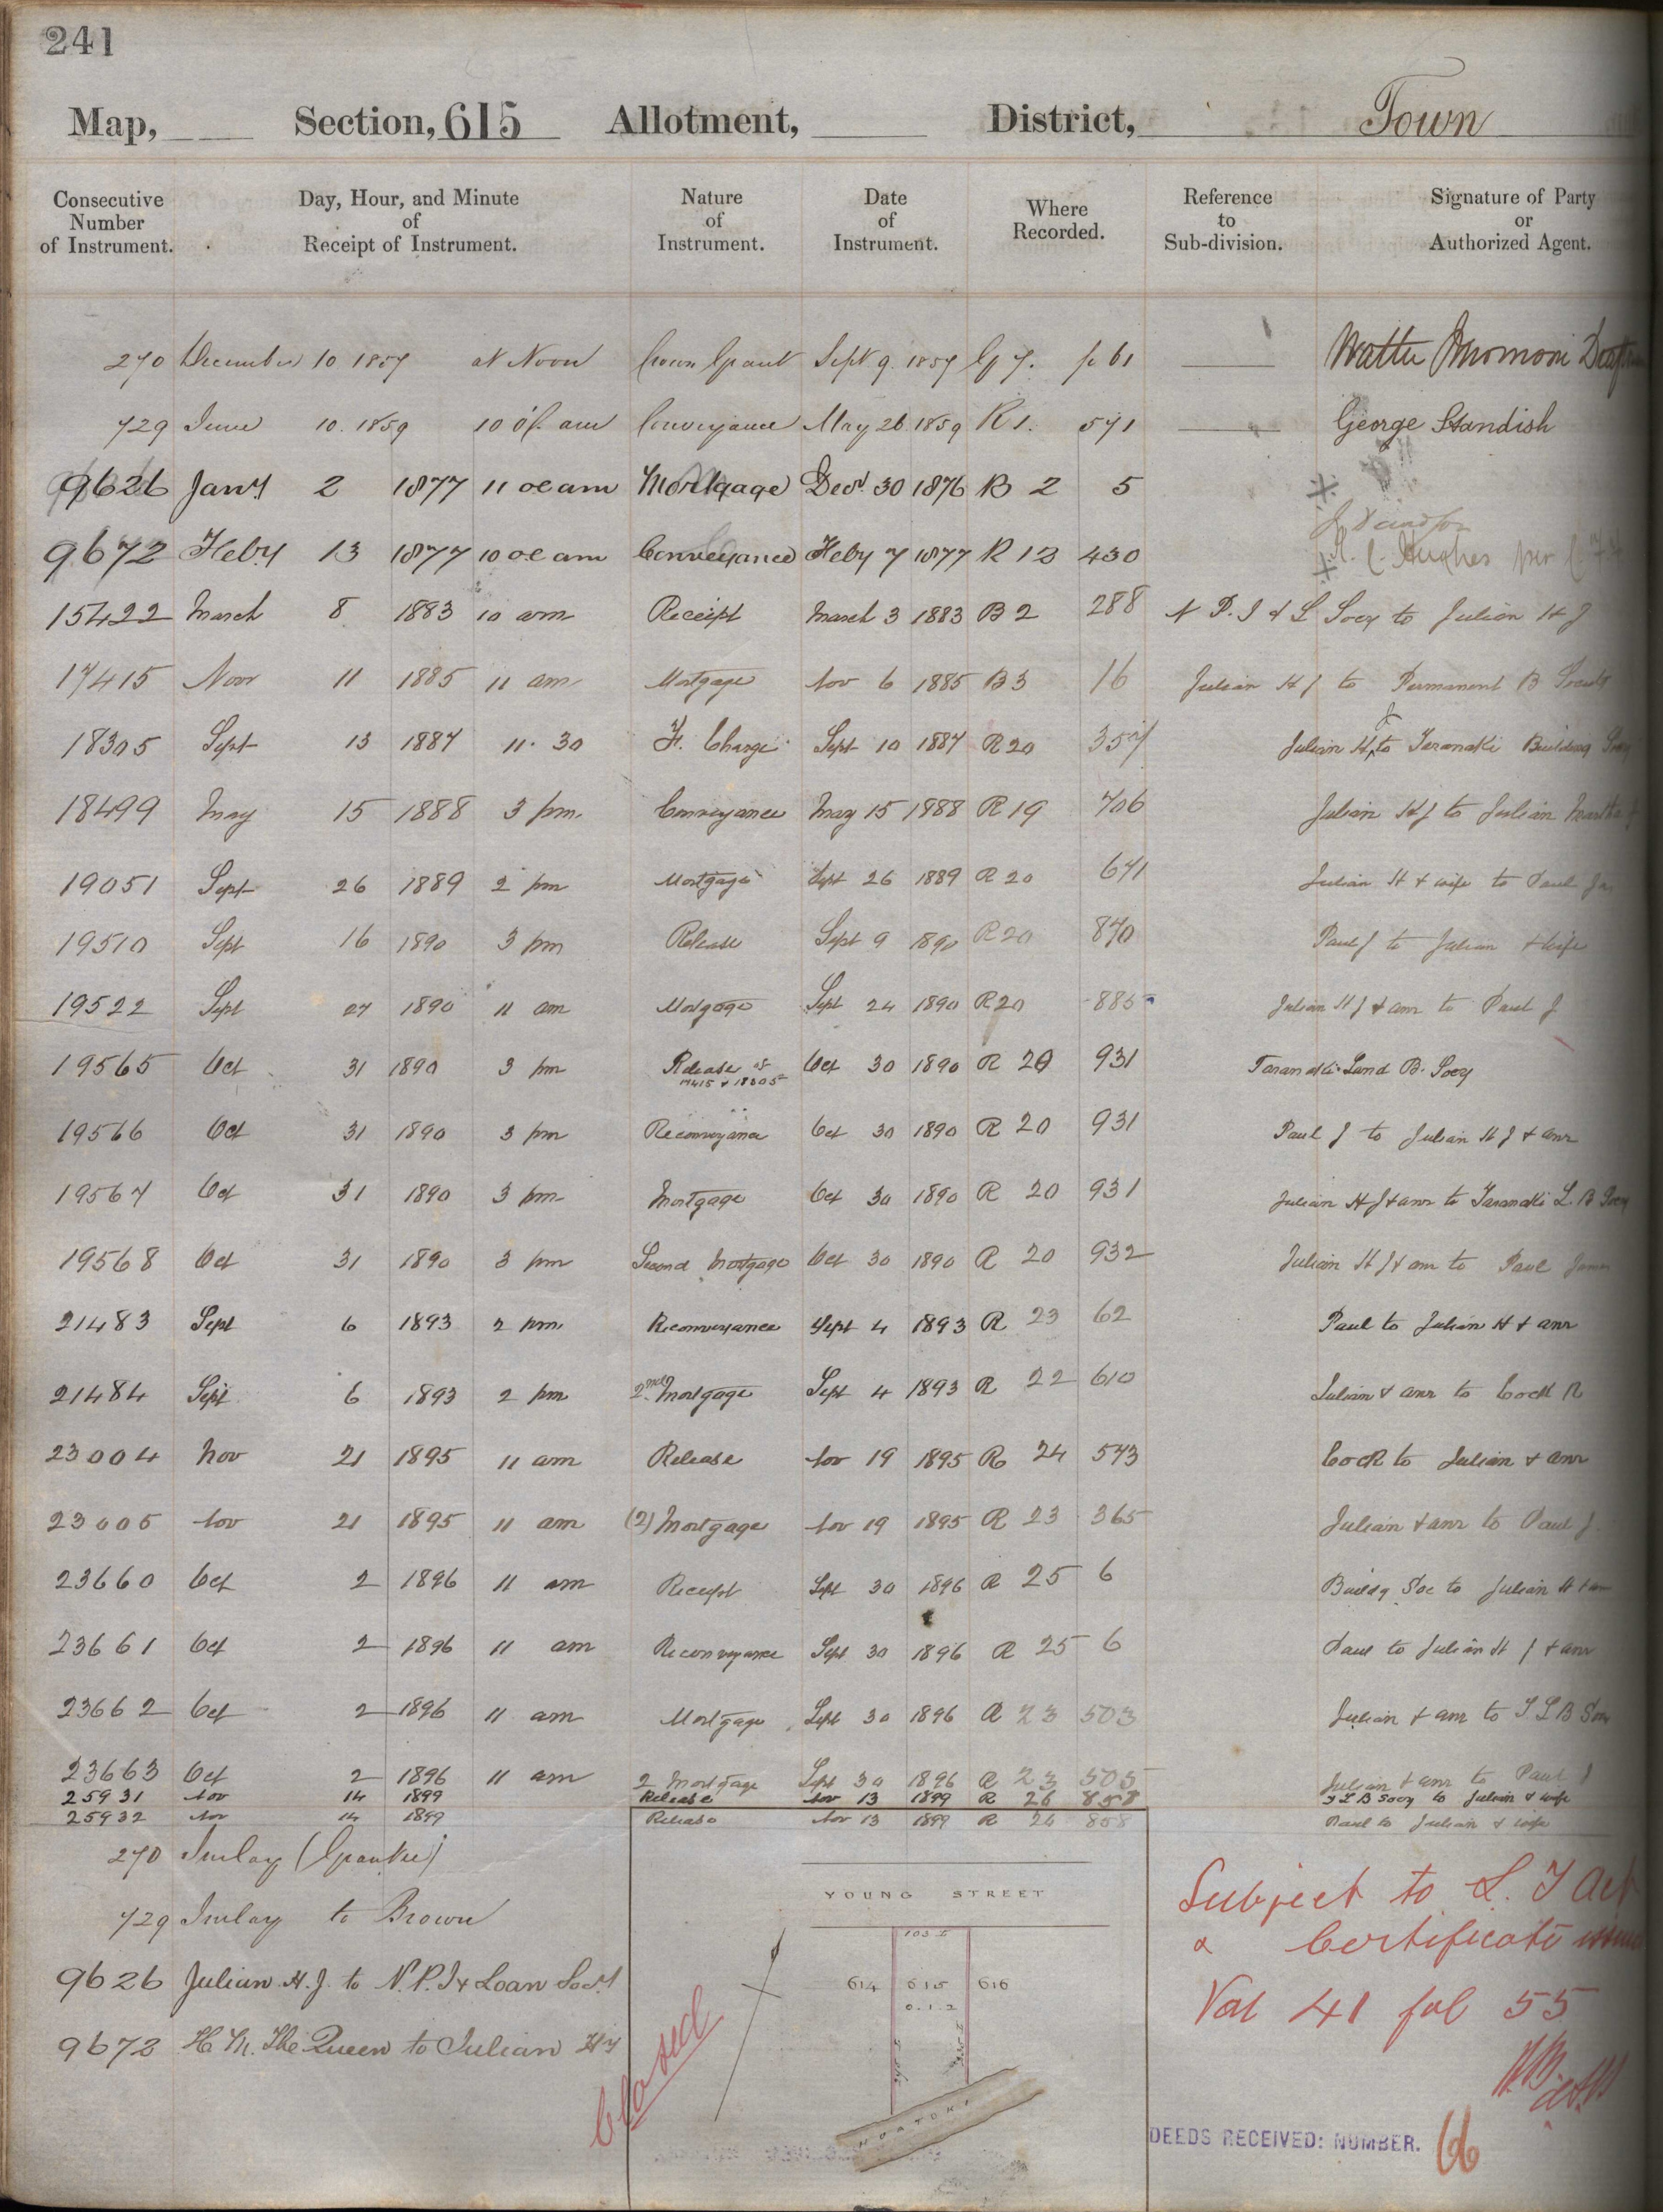 241
Map, Section, 615 Allotment, District, Town
Consecutive Number of Instrument. Day, Hour, and Minute of Receipt of Instrument. Nature of Instrument. Date of Instrument. Where Recorded. Reference to Sub-division. Signature of Party or Authorized Agent.
270 December 10 1857 at Noon Crown Grant Sept 9. 1857 G 7. p 61
729 June 10. 1859 10 am Conveyance May 26 1859 R 1. 571 George Standish
9626 Jany 2 1877 11 oc am Mortgage Decr 30 1876 B 2 5
9672 Feby 13 1877 10 oc am Conveyance Feby 7 1877 R 12 430 Hughes per
15422 March 8 1883 10 am Receipt March 3 1883 B 2 288 N P. I & L Socy to Julian H J
17415 Nov 11 1885 11 am Mortgage Nov 6 1885 B 3 16 Julian H J to Permanent B
18305 Sept 13 1887 11. 30 F. Charge Sept 10 1887 R 20 357 Julian H J to Taranaki Building Socy
18499 May 15 1888 3 pm Conveyance May 15 1888 R 19 706 Julian H J to Julian Martha
19051 Sept 26 1889 2 pm Mortgage Sept 26 1889 R 20 671 Julian H & wife to Paul
19510 Sept 16 1890 3 pm Release Sept 9 1890 R 20 870 Paul J to Julian & wife
19522 Sept 27 1890 11 am Mortgage Sept 24 1890 R 20 885 Julian H J & anr to Paul J
19565 Oct 31 1890 3 pm Release of 17415 & 18305 Oct 30 1890 R 20 931 Taranaki Land B. Socy
19566 Oct 31 1890 3 pm Reconveyance Oct 30 1890 R 20 931 Paul J to Julian H J & anr
19567 Oct 31 1890 3 pm Mortgage Oct 30 1890 R 20 931 Julian H J & anr to Taranaki L. B Socy
19568 Oct 31 1890 3 pm Second Mortgage Oct 30 1890 R 20 932 Julian H J & anr to Paul James
21483 Sept 6 1893 2 pm Reconveyance Sept 4 1893 R 23 62 Paul to Julian H & anr
21484 Sept 6 1893 2 pm 2nd Mortgage Sept 4 1893 R 22 610 Julian & anr to Cock R
23004 Nov 21 1895 11 am Release Nov 19 1895 R 24 573 Cock to Julian & anr
23005 Nov 21 1895 11 am (2) Mortgage Nov 19 1895 R 23 365 Julian & anr to Paul J.
23660 Oct 2 1896 11 am Receipt Sept 30 1896 R 25 6 Buildg Soc to Julian H & anr
23661 Oct 2 1896 11 am Reconveyance Sept 30 1896 R 25 6 Paul to Julian H J & anr
23662 Oct 2 1896 11 am Mortgage Sept 30 1896 R 23 503 Julian & anr to T L B Socy
23663 Oct 2 1896 11 am 2 Mortgage Sept 30 1896 R 23 505 Julian & anr to Paul J
25931 Nov 14 1899 Release Nov 13 1899 R 26 858 T L B Socy to Julian & wife
25932 Nov 14 1899 Release Nov 13 1899 R 26 858 Paul to Julian & wife
270 Imlay (Grantee)
729 Imlay to Brown
9626 Julian H. J. to N. P. I & Loan Socy
9672 H M. The Queen to Julian Hy
Closed
YOUNG STREET
103 L
614 615 616
0. 1. 2
HUATOKI
Subject to L. T Act
& Certificate issued
Vol 41 fol 55
DEEDS RECEIVED: NUMBER. 66